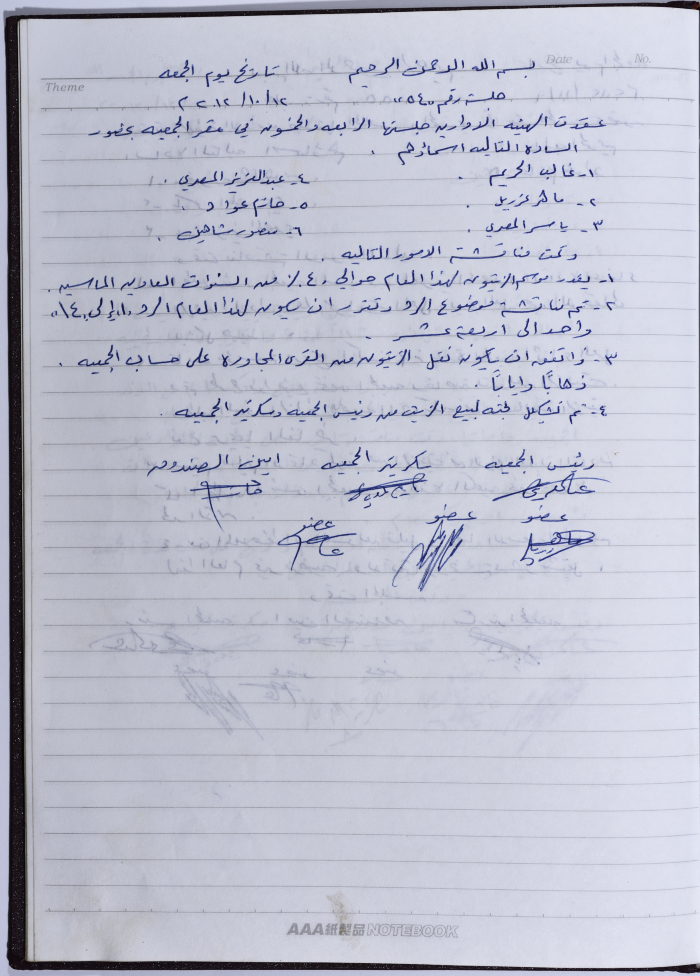 Theme
Date
No.
بسم الله الرحمن الرحيم تاريخ يوم الجمعه
جلسة رقم "٥٤" ٢٠١٢/١٠/١٢ م
عقدت الهيئه الادارين جلستها الرابعه والخمسون في مقر الجمعيه بحضور
الساده التاليه اسماؤهم .
١- غالب الكريم . ٤- عبد العزيز المصري .
٢- ماهر عزريل . ٥- خاتم عواد .
٣- ياسر المصري . ٦- منصور شاهين .
وتمت مناقشة الامور التاليه .
١- يقدر موسم الزيتون لهذا العام حوالي ٤٠٪ من السنوات العادين الماسيه .
٢- تم مناقشة موضوع الرد وتقرر ان يكون لهذا العام الرد ١ الى ١٤
واحد الى اربعة عشر .
٣- واتفق ان يكون نقل الزيتون من القرى المجاوره على حساب الجمعيه .
ذهابًا وايابًا .
٤- تم تشكيل لجنه لبيع الزيت من رئيس الجمعيه وسكرتير الجمعيه .
رئيس الجمعيه سكرتير الجمعيه امين الصندوق
عضو عضو عضو
AAA纸制品 NOTEBOOK